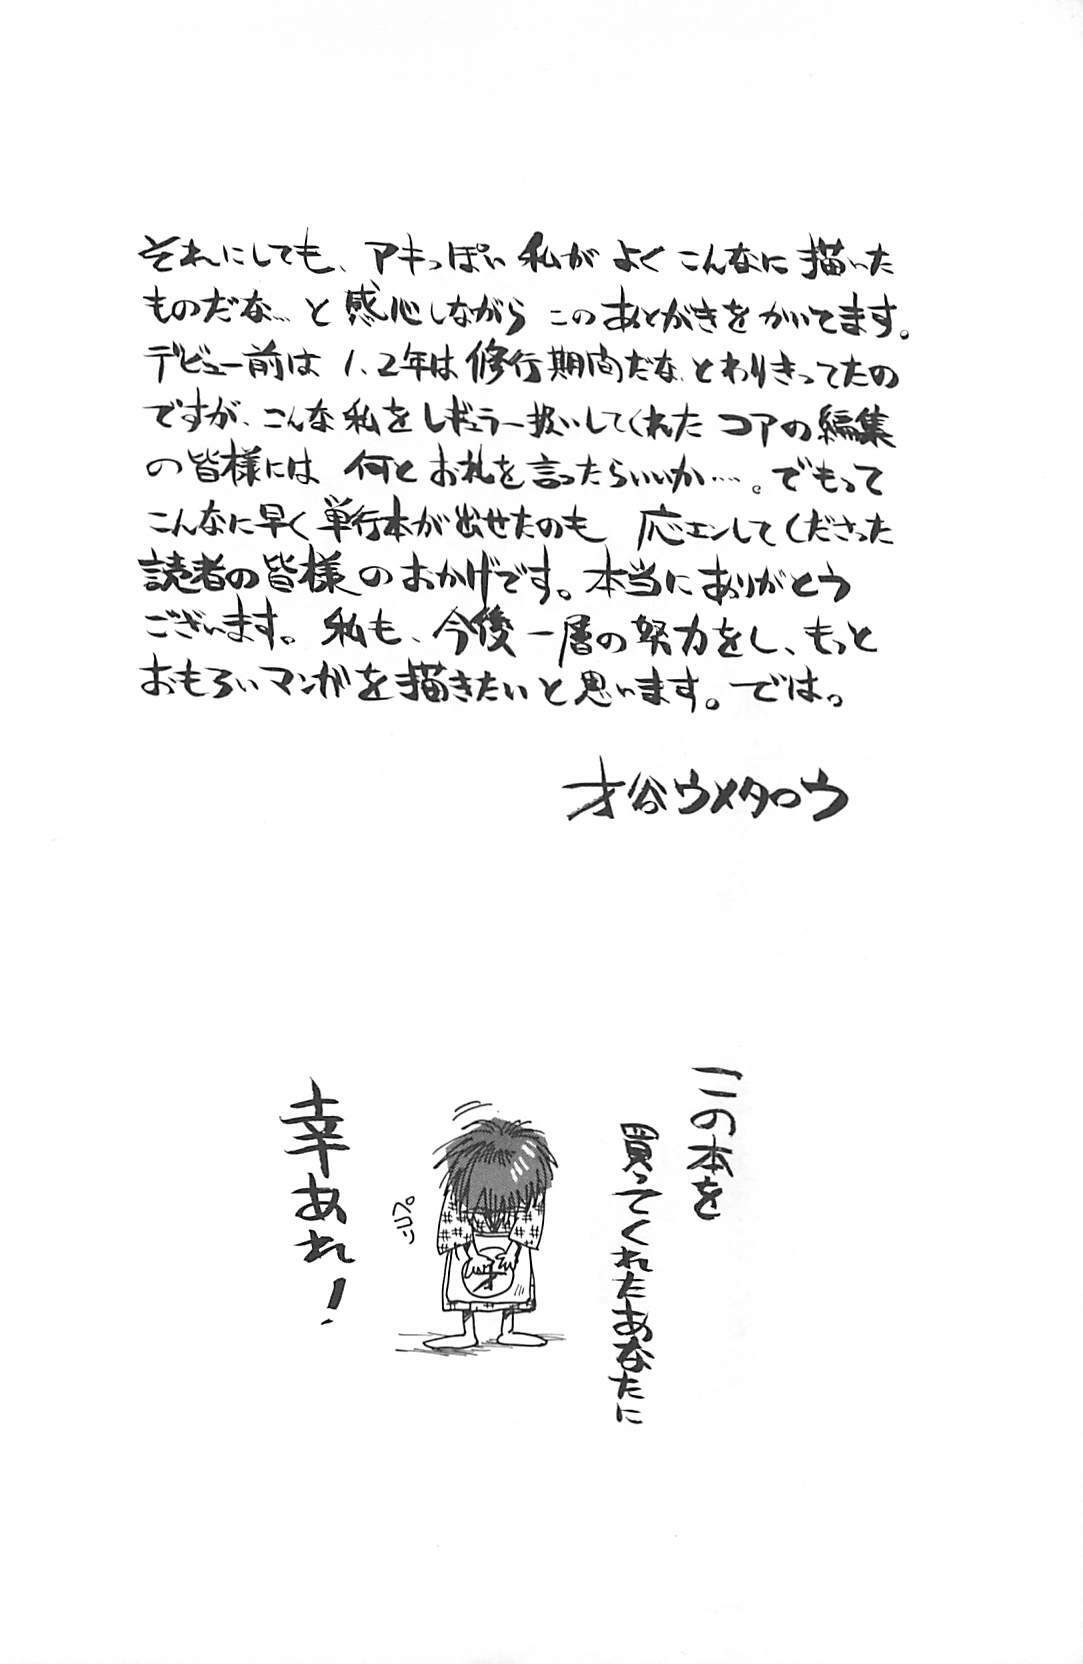 それにしても、アキっぽい私がよくこんなに描いた
ものだな…と感心しながらこのあとがきをかいてます。
デビュー前は1、2年は修行期間だな、とわりきってたの
ですが、こんな私をレギュラー扱いしてくれたコアの編集
の皆様には何とお礼を言ったらいいか……。でもって
こんなに早く単行本が出せたのも応エンしてくださった
読者の皆様のおかげです。本当にありがとう
ございます。私も、今後一層の努力をし、もっと
おもろいマンガを描きたいと思います。では。
才谷ウメタロウ
この本を
買ってくれたあなたに
才
幸あれ!